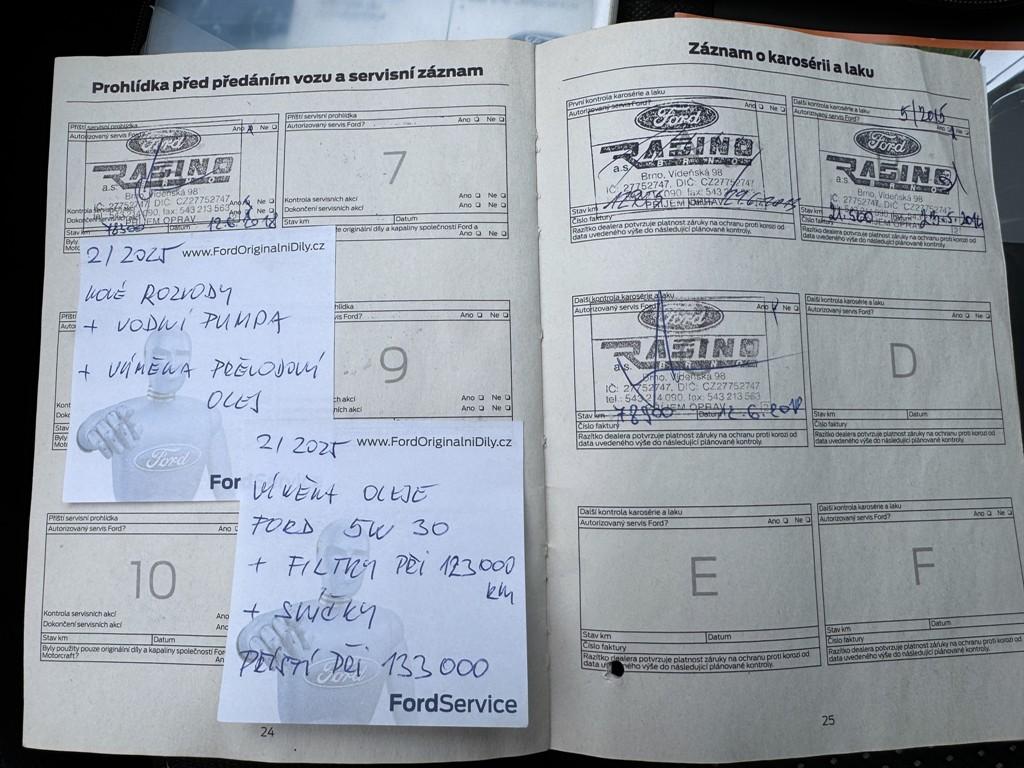 Prohlídka před předáním vozu a servisní záznam
Příští servisní prohlídka
Autorizovaný servis Ford? Ano Ne
Ford
RASINO
BRNO
a.s.
Brno, Vídeňská 98
IČ: 27752747, DIČ: CZ27752747
090, fax: 543 213 563
Kontrola
Dokončení
PŘÍJEM OPRAV
Stav km Datum
78500 12.6.2018
Byly
Motorc
Příští servisní prohlídka
Autorizovaný servis Ford? Ano Ne
7
Kontrola servisních akcí Ano Ne
Dokončení servisních akcí Ano Ne
Stav km Datum
originální díly a kapaliny společnosti Ford a
Ano Ne
2/2025 www.FordOriginalniDily.cz
NOVÉ ROZVODY
+ VODNÍ PUMPA
+ VÍMĚNA PŘEVODOVÍ
OLEJ
Ford
For
prohlídka
vis Ford? Ano Ne
9
ních akcí Ano Ne
rvisních akcí Ano Ne
2/2025 www.FordOriginalniDily.cz
VÍMĚNA OLEJE
FORD 5W 30
+ FILTRY PŘI 123000
km
+ SVÍČKY
PŘÍŠTÍ PŘI 133000
Ford
FordService
Příští servisní prohlídka
Autorizovaný servis Ford? Ano
10
Kontrola servisních akcí Ano
Dokončení servisních akcí Ano
Stav km Datum
Byly použity pouze originální díly a kapaliny společnosti For
Motorcraft? An
24
Záznam o karosérii a laku
První kontrola karosérie a laku
Autorizovaný servis Ford? Ano Ne
Ford
RASINO
BRNO
a.s.
Brno, Vídeňská 98
IČ: 27752747, DIČ: CZ27752747
090, fax: 543
PŘÍJEM OPRAV
Stav km
Číslo faktury
Razítko dealera potvrzuje platnost záruky na ochranu proti korozi od
data uvedeného výše do následující plánované kontroly.
5/2015
Další kontrola karosérie a laku
Autorizovaný servis Ford? Ano Ne
Ford
RASINO
BRNO
a.s.
Brno, Vídeňská 98
IČ: 27752747, DIČ: CZ27752747
Stav km
Číslo faktury
Razítko dealera potvrzuje platnost záruky na ochranu proti korozi od
data uvedeného výše do následující plánované kontroly.
Další kontrola karosérie a laku
Autorizovaný servis Ford? Ano Ne
Ford
RASINO
BRNO
a.s.
Brno, Vídeňská 98
IČ: 27752747, DIČ: CZ27752747
tel.: 543 214 090, fax: 543 213 563
PŘÍJEM OPRAV
Stav km 78500 Datum 12.6.2018
Číslo faktury
Razítko dealera potvrzuje platnost záruky na ochranu proti korozi od
data uvedeného výše do následující plánované kontroly.
Další kontrola karosérie a laku
Autorizovaný servis Ford? Ano Ne
D
Stav km Datum
Číslo faktury
Razítko dealera potvrzuje platnost záruky na ochranu proti korozi od
data uvedeného výše do následující plánované kontroly.
Další kontrola karosérie a laku
Autorizovaný servis Ford? Ano Ne
E
Stav km Datum
Číslo faktury
Razítko dealera potvrzuje platnost záruky na ochranu proti korozi od
data uvedeného výše do následující plánované kontroly.
Další kontrola karosérie a laku
Autorizovaný servis Ford? Ano Ne
F
Stav km Datum
Číslo faktury
Razítko dealera potvrzuje platnost záruky na ochranu proti korozi od
data uvedeného výše do následující plánované kontroly.
25